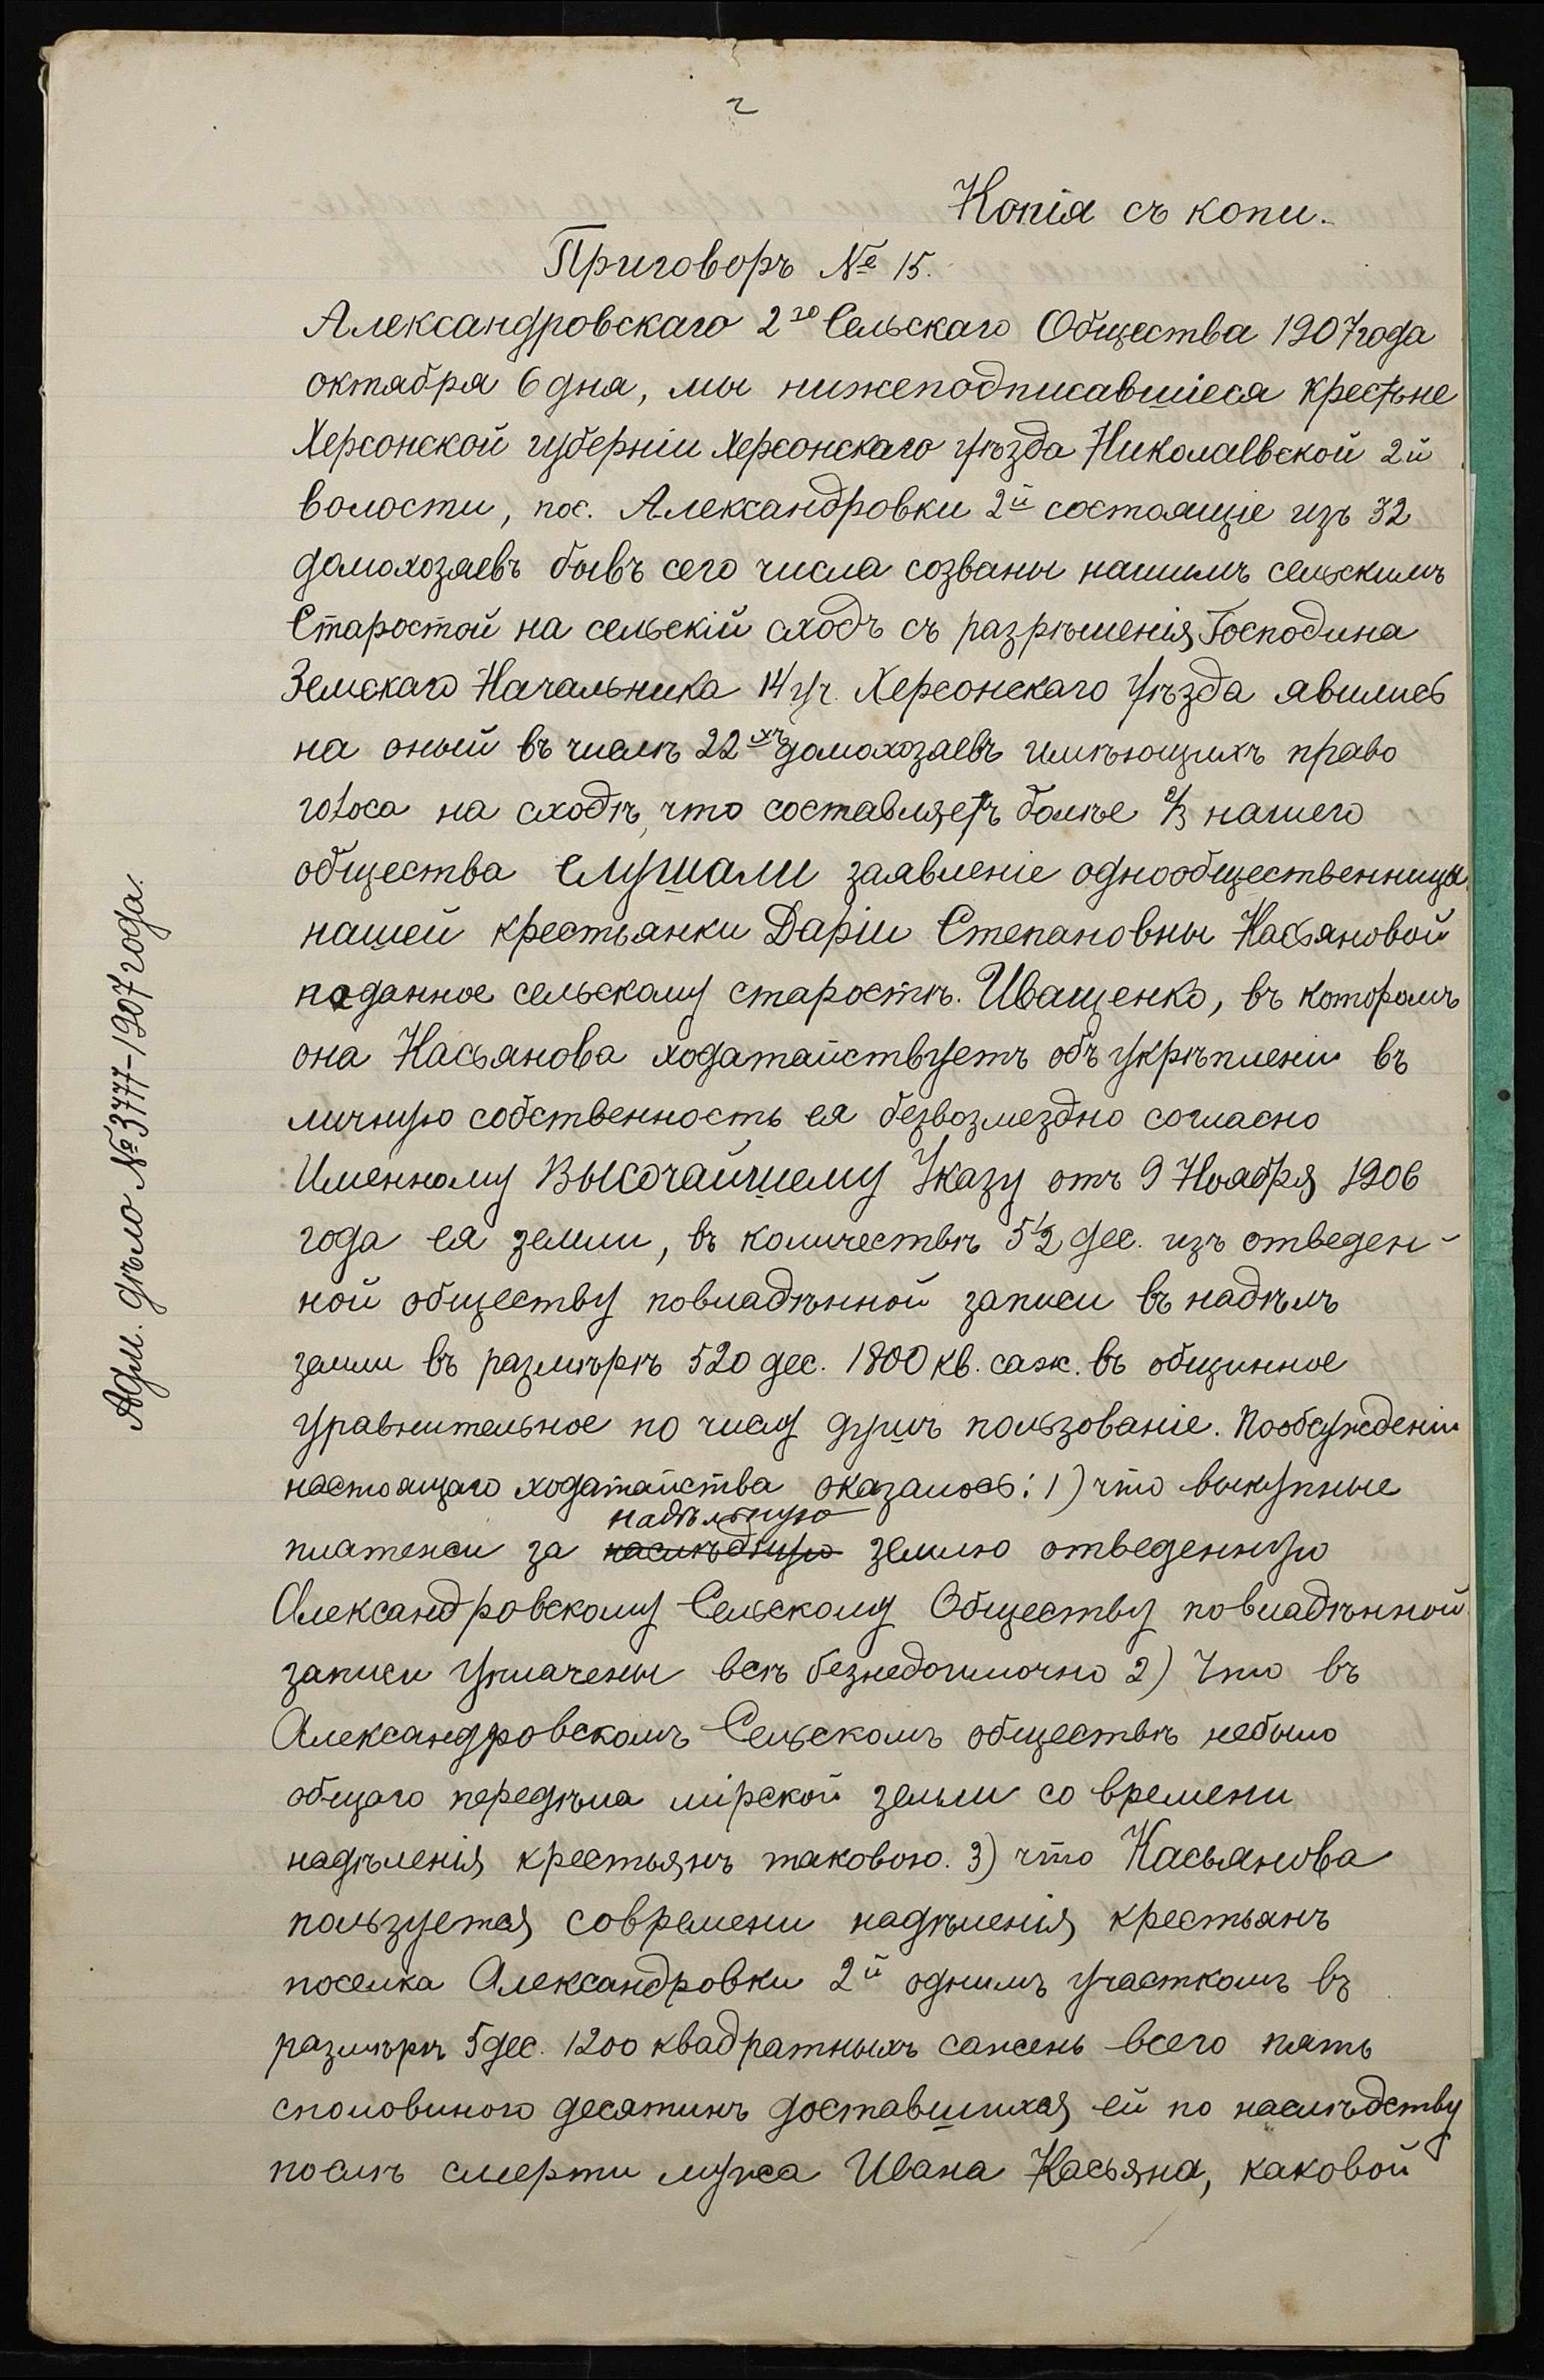 2
Копія съ копи.
Приговоръ № 15.
Александровскаго 2го Сельскаго Общества 1907 года
октября 6 дня, мы нижеподписавшіеся крестьне
Херсонской губерніи Херсонскаго уѣзда Николаевской 2й
волости, пос. Александровки 2й состоящіе изъ 32
домохозяевъ бывъ сего числа созваны нашимъ сельскимъ
Старостой на сельскій сходъ съ разрѣшенія Господина
Земскаго Начальника 14 уч. Херсонскаго уѣзда явились
на оный въ числѣ 22хъ домохозяевъ имѣющихъ право
голоса на сходѣ, что составляетъ болѣе 2/3 нашего
общества Слушали заявленіе однообщественницы
нашей крестьянки Даріи Степановны Касьяновой
поданное сельскому старостѣ. Иващенко, въ которомъ
она Касьянова ходатайствуетъ объ укрѣплени въ
личную собственность ея безвозмездно согласно
Именному Высочайшему Указу отъ 9 Ноября 1906
года ея земли, въ количествѣ 5 1/2 дес. изъ отведен-
ной обществу повладѣнной записи въ надѣлъ
земли въ размѣрѣ 520 дес. 1800 кв. саж. въ общинное
уравнительное по числу душъ пользованіе. Пообсужденіи
настоящаго ходатайства оказалось: 1) что выкупные
надѣльную
платежи за наслѣдную землю отведенную
Александровскому Сельскому Обществу повладѣнной
записи уплачены всѣ безнедоимочно 2) Что въ
Александровскомъ Сельскомъ обществѣ небыло
общаго передѣла мірской земли со времени
надѣленія крестьянъ таковою. 3) что Касьянова
пользуется современи надѣленія крестьянъ
поселка Александровки 2й однимъ участкомъ въ
размѣрѣ 5 дес. 1200 квадратныхъ сажень всего пять
споловиною десятинъ доставшихся ей по наслѣдству
послѣ смерти мужа Ивана Касьяна, каковой
Адм. дѣло № 3777-1907 года.